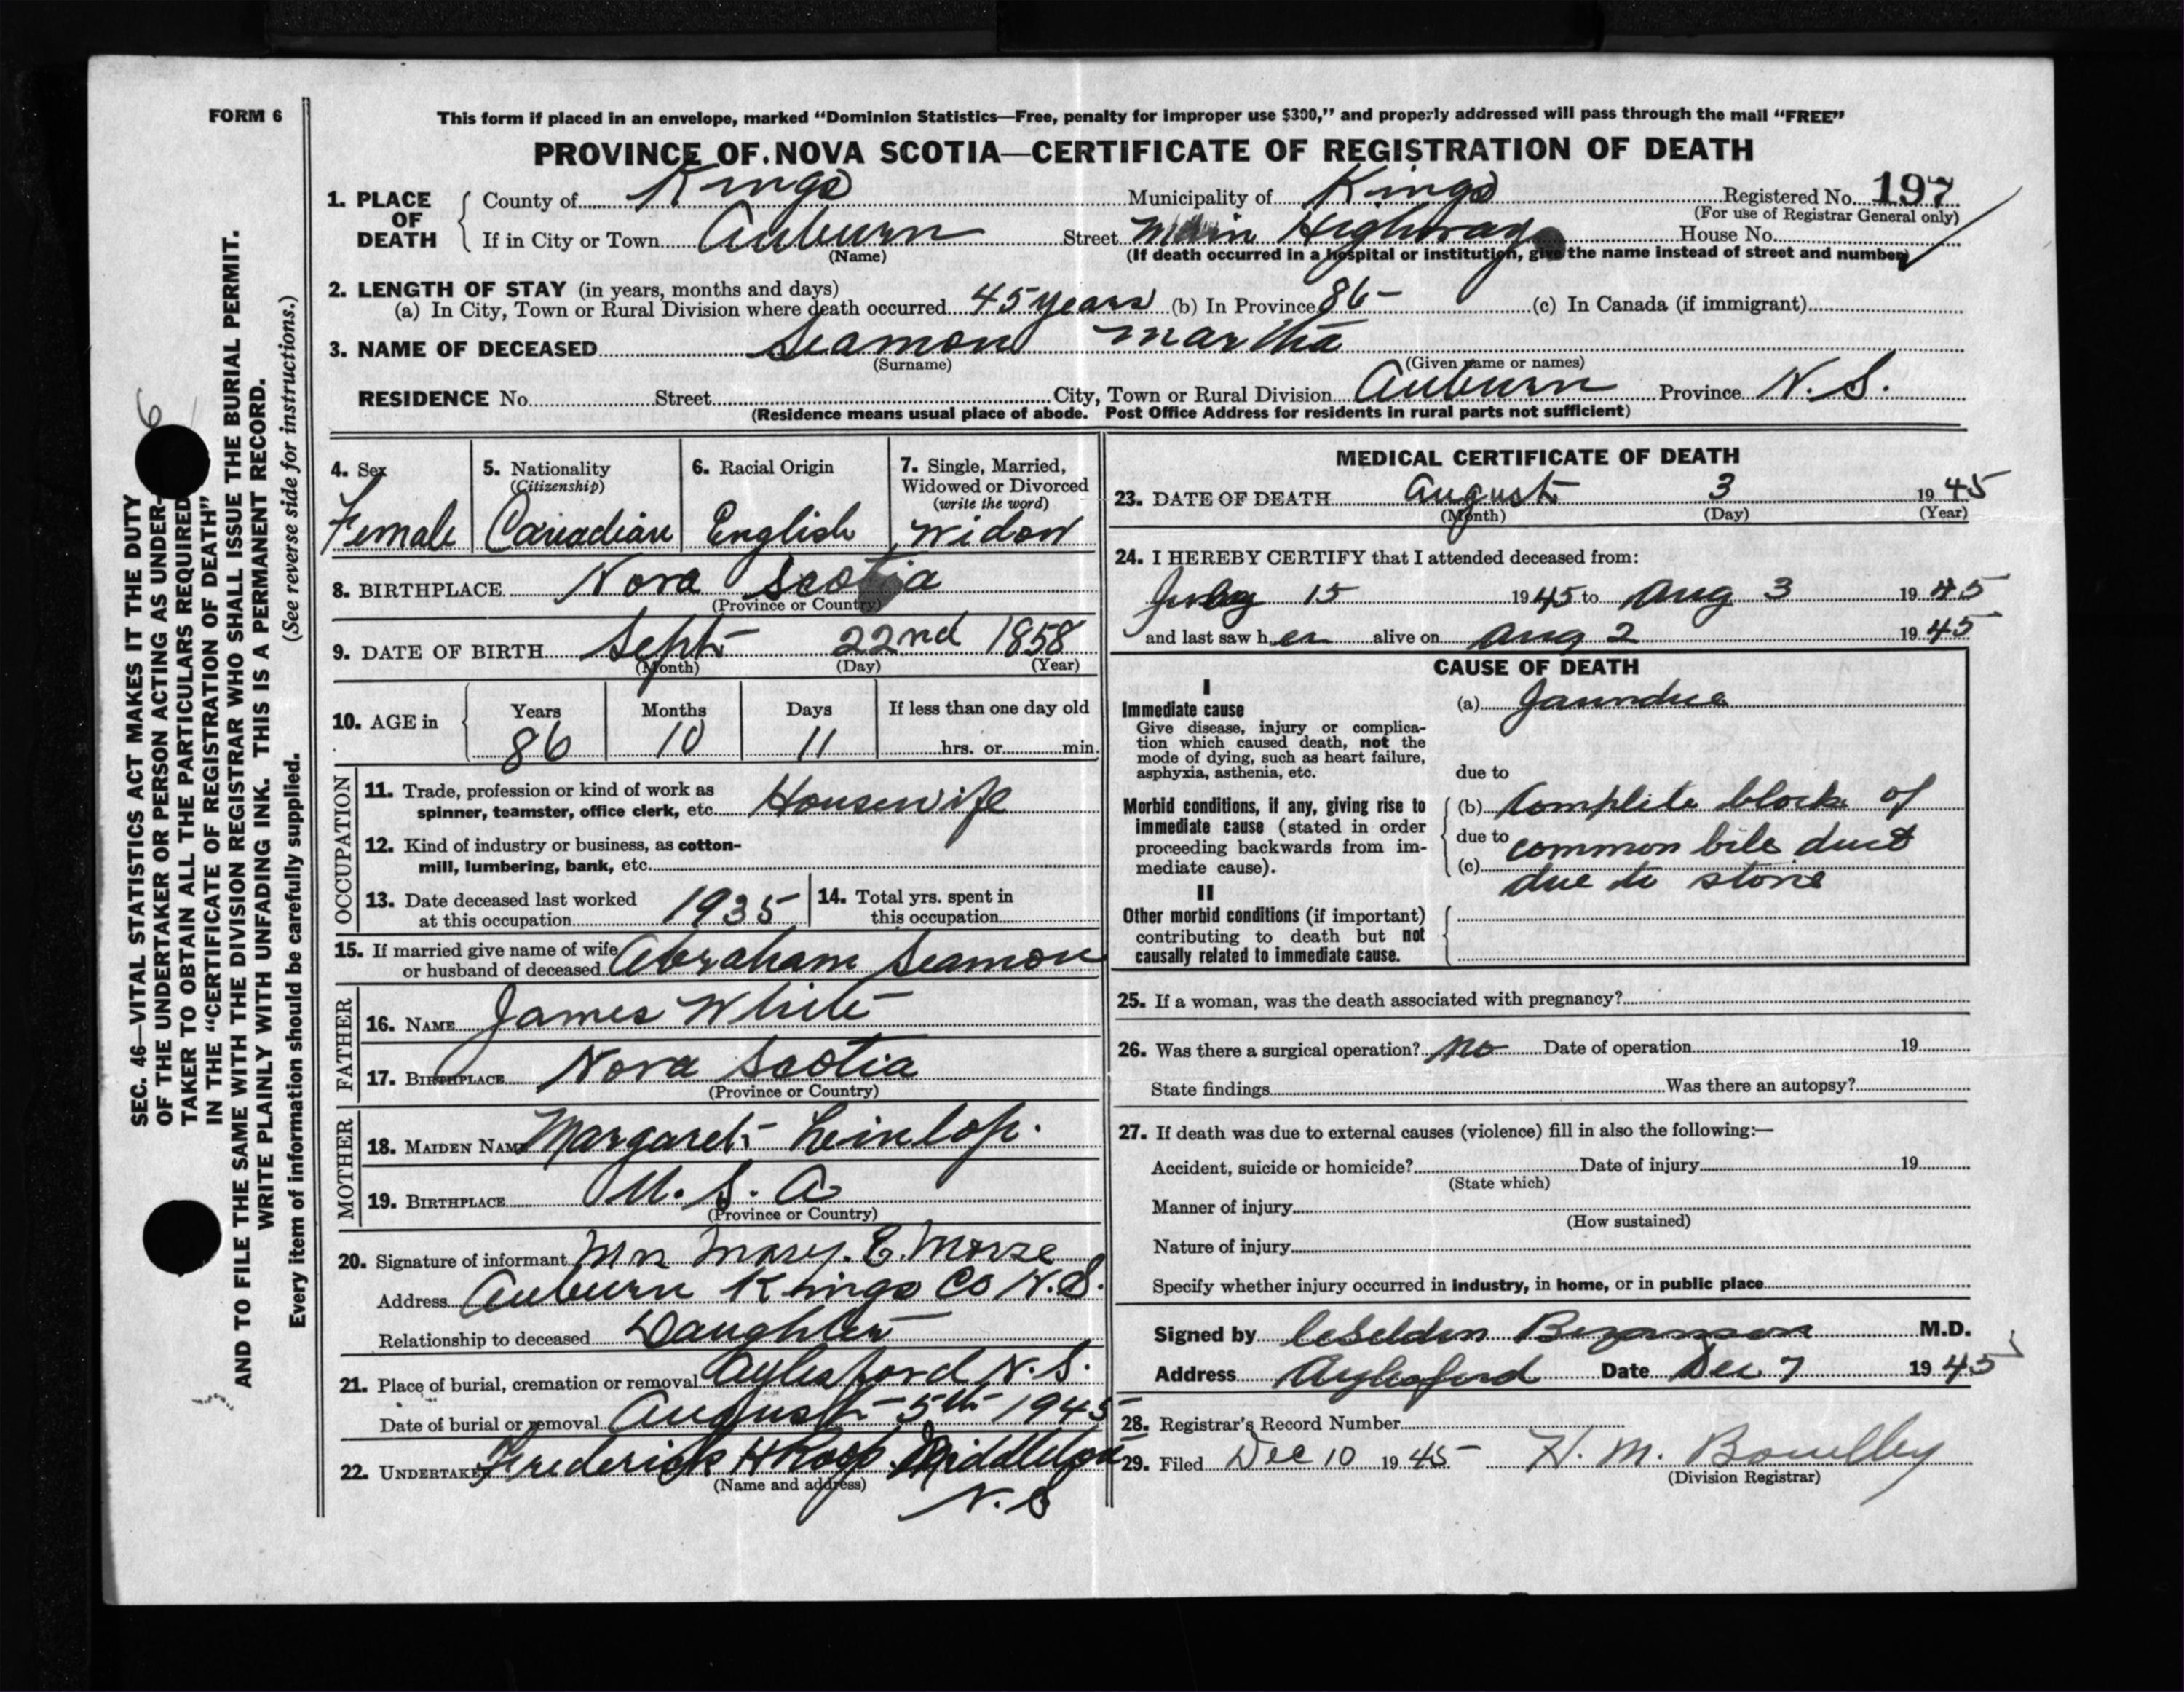 FORM 6
This form if placed in an envelope, marked “Dominion Statistics—Free, penalty for improper use $300,” and properly addressed will pass through the mail “FREE”
PROVINCE OF NOVA SCOTIA—CERTIFICATE OF REGISTRATION OF DEATH
1. PLACE OF DEATH County of Kings Municipality of Kings Registered No. 197
(For use of Registrar General only)
If in City or Town Auburn Street Main Highway House No.
(Name) (If death occurred in a hospital or institution, give the name instead of street and number)
2. LENGTH OF STAY (in years, months and days)
(a) In City, Town or Rural Division where death occurred 45 years (b) In Province 86 (c) In Canada (if immigrant)
3. NAME OF DECEASED Seamon Martha
(Surname) (Given name or names)
RESIDENCE No. Street City, Town or Rural Division Auburn Province N. S.
(Residence means usual place of abode. Post Office Address for residents in rural parts not sufficient)
4. Sex 5. Nationality (Citizenship) 6. Racial Origin 7. Single, Married, Widowed or Divorced (write the word)
Female Canadian English Widow
8. BIRTHPLACE Nova Scotia
(Province or Country)
9. DATE OF BIRTH Sept 22nd 1858
(Month) (Day) (Year)
10. AGE in Years Months Days If less than one day old
86 10 11 hrs. or min.
OCCUPATION
11. Trade, profession or kind of work as
spinner, teamster, office clerk, etc. Housewife
12. Kind of industry or business, as cotton-
mill, lumbering, bank, etc.
13. Date deceased last worked
at this occupation 1935
14. Total yrs. spent in
this occupation
15. If married give name of wife
or husband of deceased Abraham Seamon
FATHER
16. NAME James White
17. BIRTHPLACE Nova Scotia
(Province or Country)
MOTHER
18. MAIDEN NAME Margaret
19. BIRTHPLACE U. S. A
(Province or Country)
20. Signature of informant Mrs Mary. E. Morse
Address Auburn Kings Co N.S.
Relationship to deceased Daughter
21. Place of burial, cremation or removal Aylesford N. S.
Date of burial or removal August 5th 1945
22. UNDERTAKER Frederick H Roop Middleton
(Name and address)
N. S
MEDICAL CERTIFICATE OF DEATH
23. DATE OF DEATH August 3 1945
(Month) (Day) (Year)
24. I HEREBY CERTIFY that I attended deceased from:
July 15 1945 to Aug 3 1945
and last saw her alive on Aug 2 1945
CAUSE OF DEATH
I
Immediate cause
Give disease, injury or complica-
tion which caused death, not the
mode of dying, such as heart failure,
asphyxia, asthenia, etc.
(a) Jaundice
due to
Morbid conditions, if any, giving rise to
immediate cause (stated in order
proceeding backwards from im-
mediate cause).
(b) Complete block of
due to common bile duct
(c) due to stone
II
Other morbid conditions (if important)
contributing to death but not
causally related to immediate cause.
25. If a woman, was the death associated with pregnancy?
26. Was there a surgical operation? no Date of operation 19
State findings Was there an autopsy?
27. If death was due to external causes (violence) fill in also the following:—
Accident, suicide or homicide? Date of injury 19
(State which)
Manner of injury
(How sustained)
Nature of injury
Specify whether injury occurred in industry, in home, or in public place
Signed by Selden Bezanson M.D.
Address Aylesford Date Dec 7 1945
28. Registrar's Record Number
29. Filed Dec 10 1945 H. M.
(Division Registrar)
SEC. 46—VITAL STATISTICS ACT MAKES IT THE DUTY
OF THE UNDERTAKER OR PERSON ACTING AS UNDER-
TAKER TO OBTAIN ALL THE PARTICULARS REQUIRED
IN THE “CERTIFICATE OF REGISTRATION OF DEATH”
AND TO FILE THE SAME WITH THE DIVISION REGISTRAR WHO SHALL ISSUE THE BURIAL PERMIT.
WRITE PLAINLY WITH UNFADING INK. THIS IS A PERMANENT RECORD.
Every item of information should be carefully supplied. (See reverse side for instructions.)
6